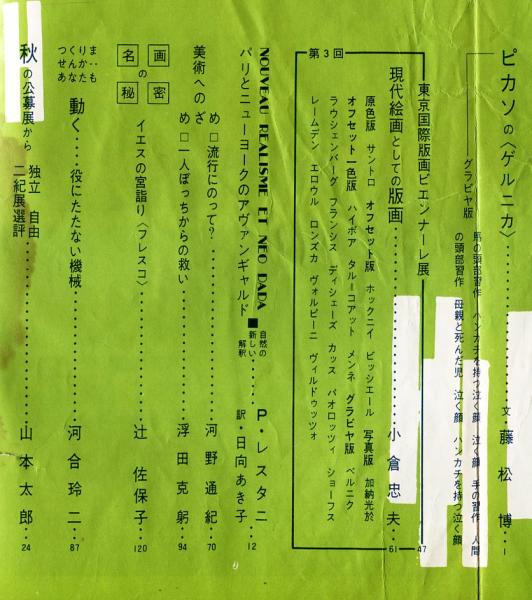 ピカソの〈ゲルニカ〉……文・藤松 博…1
グラビヤ版 馬の頭部習作 ハンカチを持つ泣く顔 泣く顔 手の習作 人間
の頭部習作 母親と死んだ児 泣く顔 ハンカチを持つ泣く顔
第3回
東京国際版画ビエンナーレ展 47
現代絵画としての版画……小倉忠夫…61
原色版 サントロ オフセット版 ホックニイ ピッシエール 写真版 加納光於
オフセット一色版 ハイボア タルーコアット メンネ グラビヤ版 ベルニク
ラウシェンバーグ フランシス ディシェーズ カッス パオロッツィ ショーフス
レームデン エロウル ロンズカ ヴォルピーニ ヴィルドゥッツォ
NOUVEAU REALISME ET NEO DADA
パリとニューヨークのアヴァンギャルド ■自然の新しい解釈……P・レスタニ
訳・日向あき子…12
美術へのざ
め□流行にのって?……河野通紀…70
め□一人ぼっちからの救い……浮田克躬…94
名画の秘密
イエスの宮詣り〈フレスコ〉……辻 佐保子…120
ま‥も
りかた
くんな
つせあ
動く……役にたたない機械……河合玲二…87
秋の公募展から 独立 自由
二紀展選評……山本太郎…24